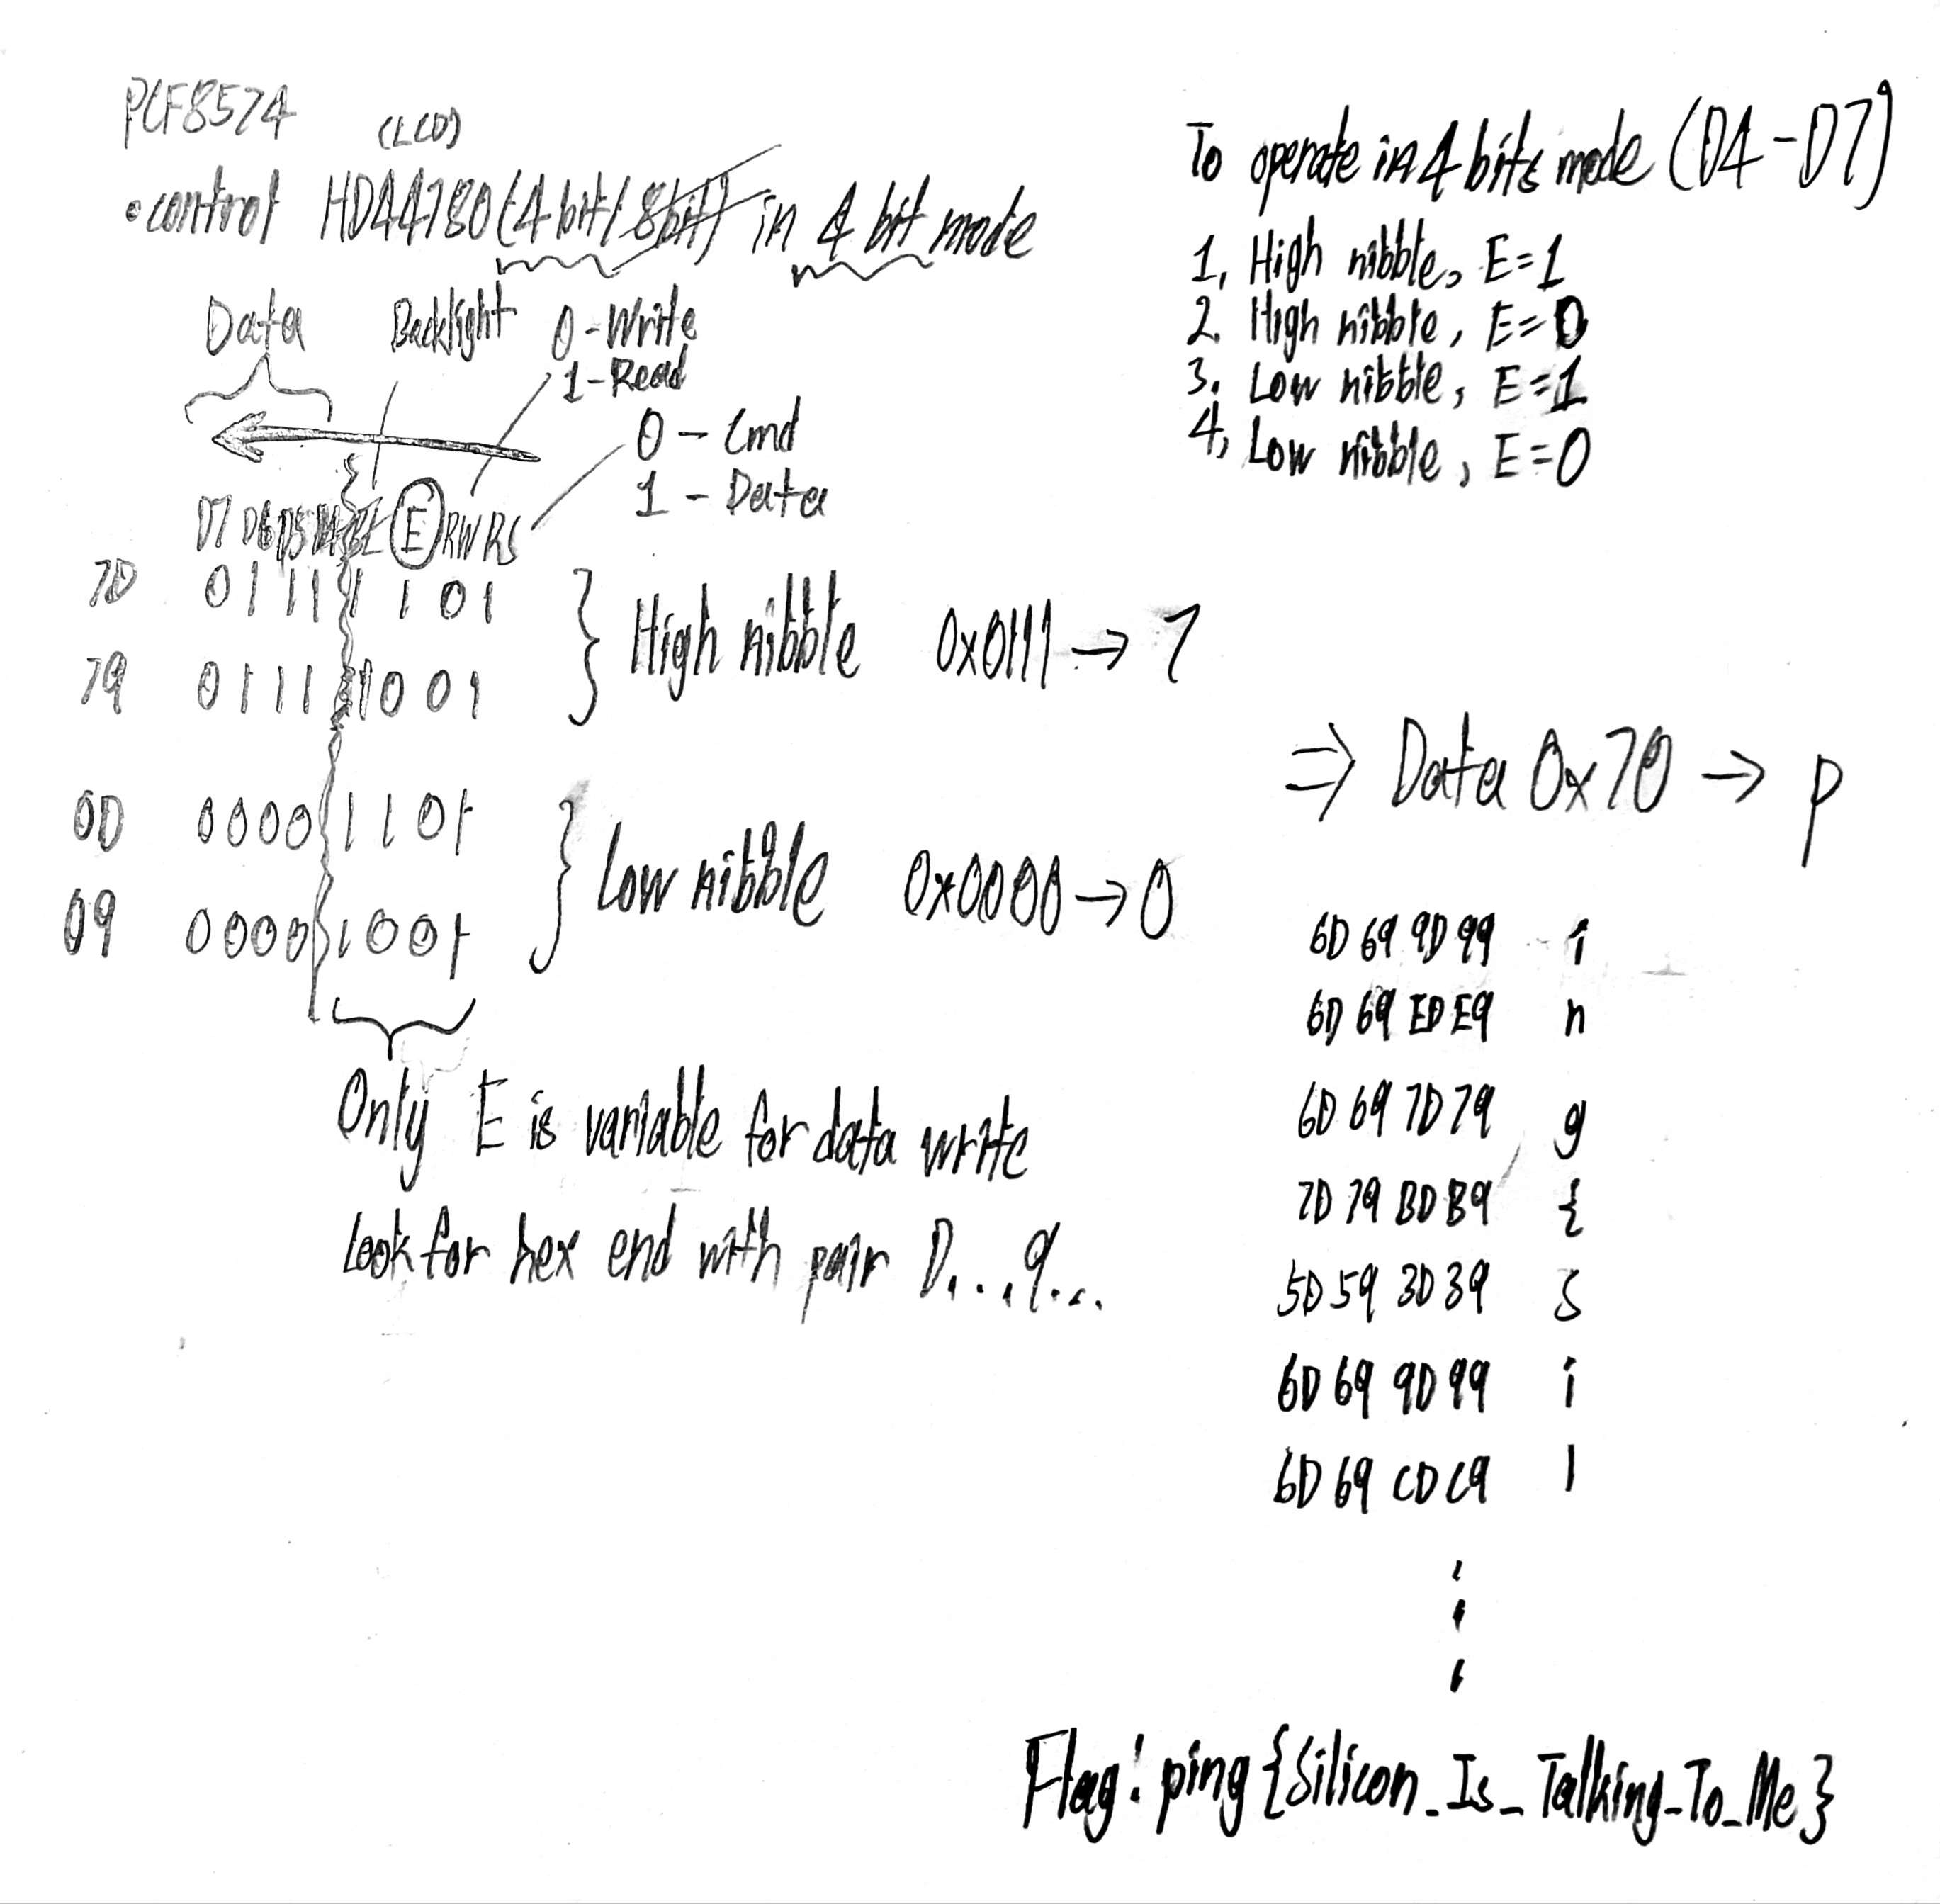 PCF8574
(LCD)
• control HD44780 (4 bit/8bit) in 4 bit mode
Data
Backlight
0 - Write
1 - Read
0 - Cmd
1 - Data
D7 D6 D5 D4 BL E RW RS
7D 0111 1101
79 0111 1001
} High nibble 0x0111 → 7
0D 0000 1101
09 0000 1001
} Low nibble 0x0000 → 0
Only E is variable for data write
Look for hex end with pair D...9...
To operate in 4 bits mode (D4-D7)
1. High nibble, E=1
2. High nibble, E=0
3. Low nibble, E=1
4. Low nibble, E=0
⇒ Data 0x70 → p
6D 69 9D 99 i
6D 69 ED E9 n
6D 69 7D 79 g
7D 79 BD B9 {
5D 59 3D 39 S
6D 69 9D 99 i
6D 69 CD C9 l
Flag: ping{Silicon_Is_Talking_To_Me}